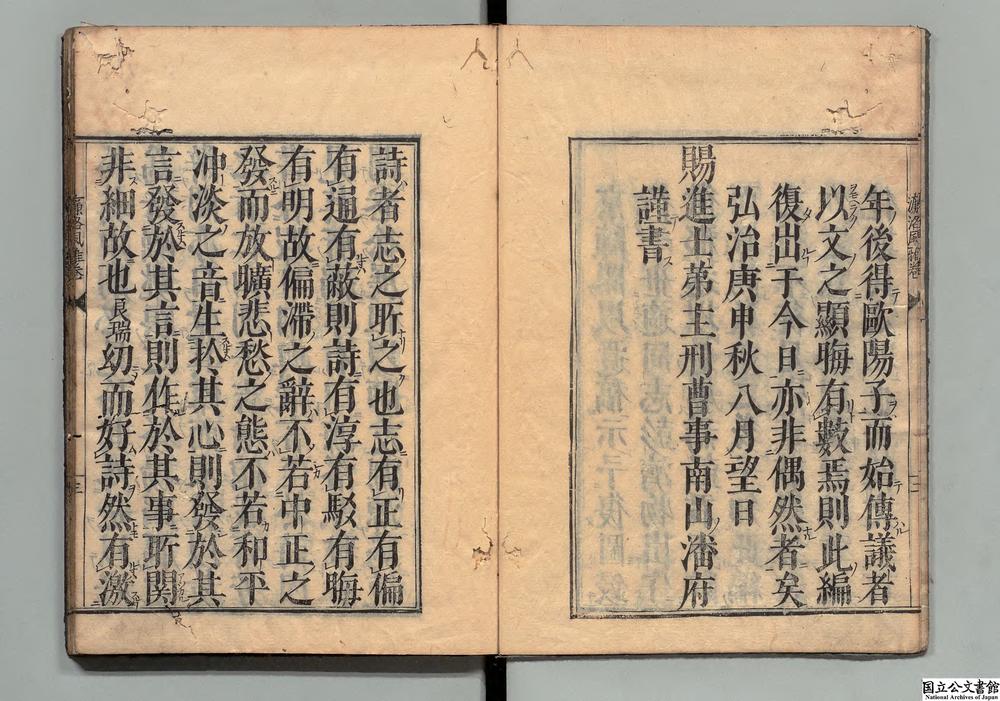 年後得歐陽子而始傳議者
以文之顯晦有數焉則此編
復出于今日亦非偶然者矣
弘治庚申秋八月望日
賜進士弟主刑曹事南山潘府
謹書
詩者志之所之也志有正有偏
有通有蔽則詩有淳有駁有晦
有明故偏滯之辭不若中正之
發而放曠悲愁之態不若和平
冲淡之音生於其心則發於其
言發於其言則作於其事所関
非細故也良瑞幼而好詩然有激
国立公文書館
National Archives of Japan